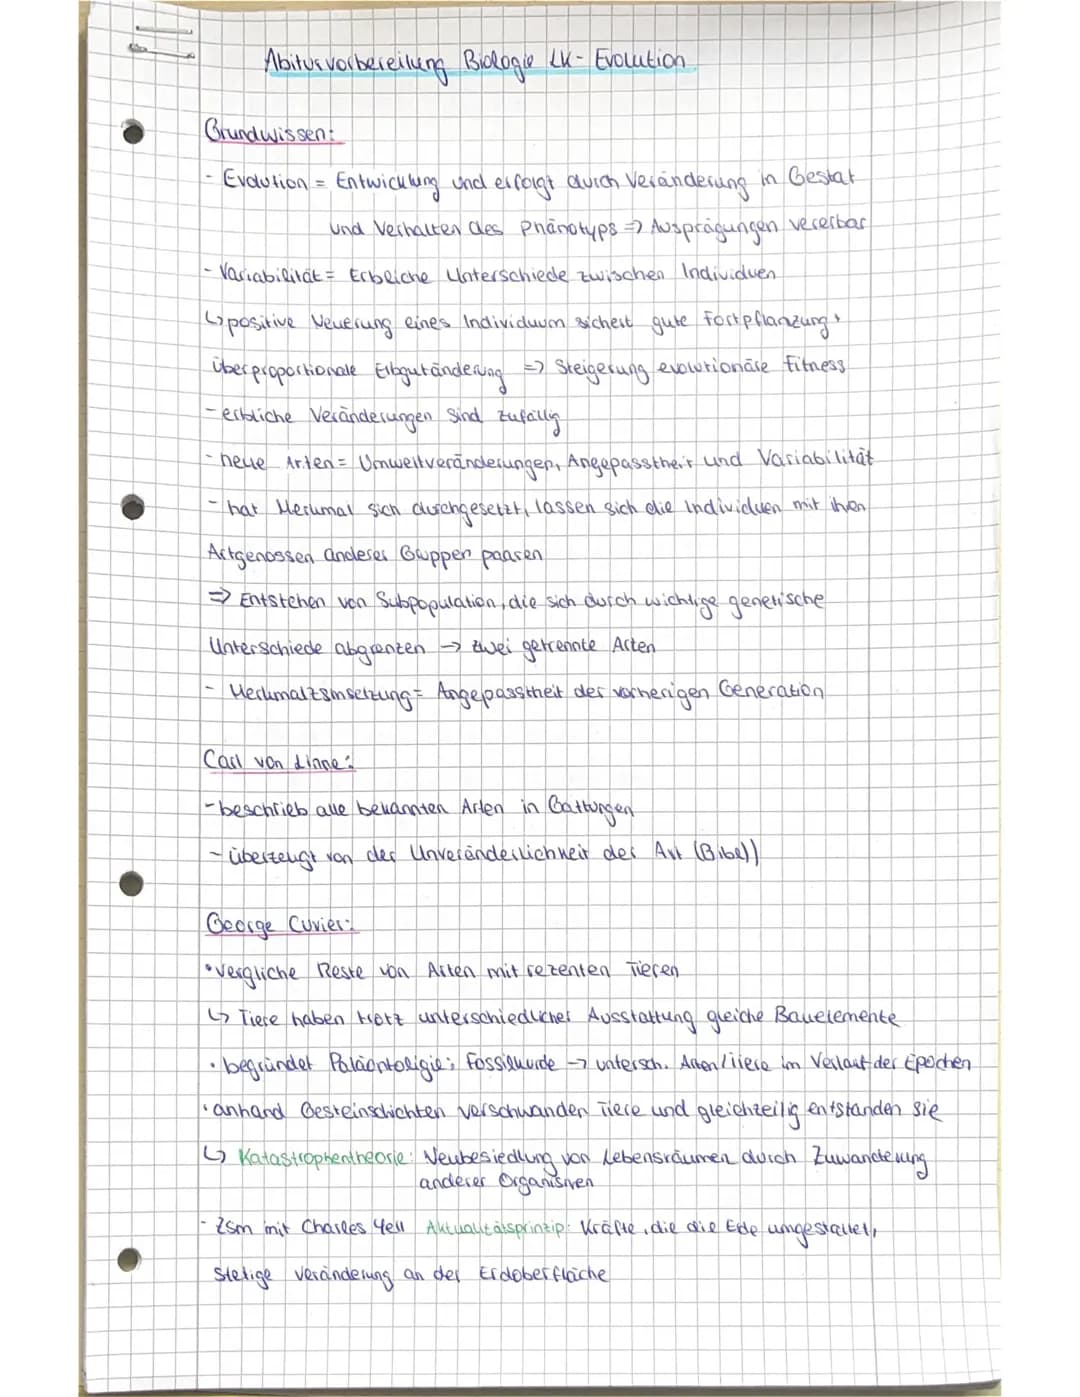 Abiturvorbereitung Biologie LK - Evolution
Grundwissen:
- Evolution = Entwicklung und erfolgt durch Veränderung in Gestalt
und Verhalten des Phänotyps => Ausprägungen vererbar
- Variabilität = Erbliche Unterschiede zwischen Individuen
↳ positive Neuerung eines Individuum sichert gute Fortpflanzung,
überproportionale Erbgutänderung => Steigerung evolutionäre Fitness
- erbliche Veränderungen sind zufällig
- neue Arten = Umweltveränderungen, Angepasstheit und Variabilität
- hat Merkmal sich durchgesetzt, lassen sich die Individuen mit ihren
Artgenossen anderer Gruppen paaren
=> Entstehen von Subpopulation, die sich durch wichtige genetische
Unterschiede abgrenzen -> zwei getrennte Arten
- = Angepasstheit der vorherigen Generation
Carl von Linne:
- beschrieb alle bekannten Arten in Gattungen
- überzeugt von der Unveränderlichkeit der Art (Bibel)
George Cuvier:
• vergliche Reste von Arten mit rezenten Tieren
↳ Tiere haben trotz unterschiedlicher Ausstattung gleiche Bauelemente
• begründet Paläontoligie; -> untersch. Arten/Tiere im Verlauf der Epochen
• anhand Gesteinschichten verschwanden Tiere und gleichzeitig entstanden sie
↳ Katastrophentheorie: Neubesiedlung von Lebensräumen durch Zuwanderung
anderer Organismen
- Zsm mit Charles Yell Aktualitätsprinzip: Kräfte, die die Erde umgestaltet,
stetige Veränderung an der Erdoberfläche